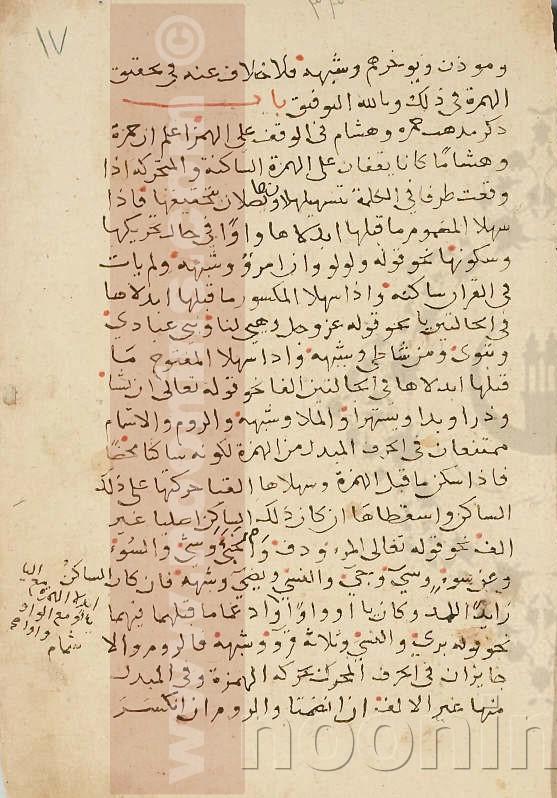 ١٧
وموذن ويوخرهم وشبهه فلا خلاف عنه في تحقيق
الهمزة في ذلك وبالله التوفيق باب
ذكر مذهب حمزه وهشام في الوقف على الهمز اعلم ان حمزة
وهشاما كانا يقفان على الهمزة الساكنة والمتحركه اذا
وقعت طرفا في الكلمة بتسهيلها ويصلان بتحقيقها فاذا
سهلا المضموم ما قبلها ابدلاها واوا في حال تحريكها
وسكونها نحو قوله ولولو وان امرؤ وشبهه ولم يات
في القران ساكنه واذا سهلا المكسور ما قبلها ابدلاها
في الحالتين يا نحو قوله عز وجل وهيي لنا ونبي عبادي
وتبوى ومن شاطي وشبهه واذا سهلا المفتوح ما
قبلها ابدلاها في الحالتين الفا نحو قوله تعالى ان نشا
وذرا وبدا ويستهزا والملا وشبهه والروم والاشمام
ممتنعان في الحرف المبدل من الهمزة لكونه ساكنا محضا
فاذا سكن ما قبل الهمزة وسهلاها القيا حركتها على ذلك
الساكن واسقطاها ان كان ذلك الساكن اصليا غير
الف نحو قوله تعالى المرء ودف والخبء وشي والسوء
وعن سوء وسي وجي والمسي ويضي وشبهه فان كان الساكن
زايدا للمد وكان يا او واوا ادغما ما قبلهما فيهما
نحو قوله بري والنسي وثلاثة قروو وشبهه والروم والا
شمام
جايزان في الحرف المحرك بحركه الهمزة وفي المبدل
منها غير الالف ان انضمتا والروم ان انكسر
www. .com
noonin